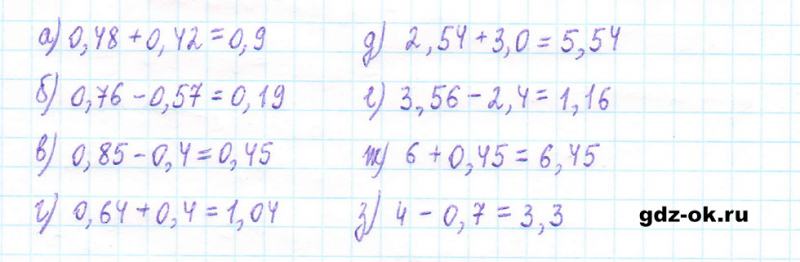 а) 0,48 + 0,42 = 0,9
б) 0,76 - 0,57 = 0,19
в) 0,85 - 0,4 = 0,45
г) 0,64 + 0,4 = 1,04
д) 2,54 + 3,0 = 5,54
г) 3,56 - 2,4 = 1,16
ж) 6 + 0,45 = 6,45
з) 4 - 0,7 = 3,3
gdz-ok.ru